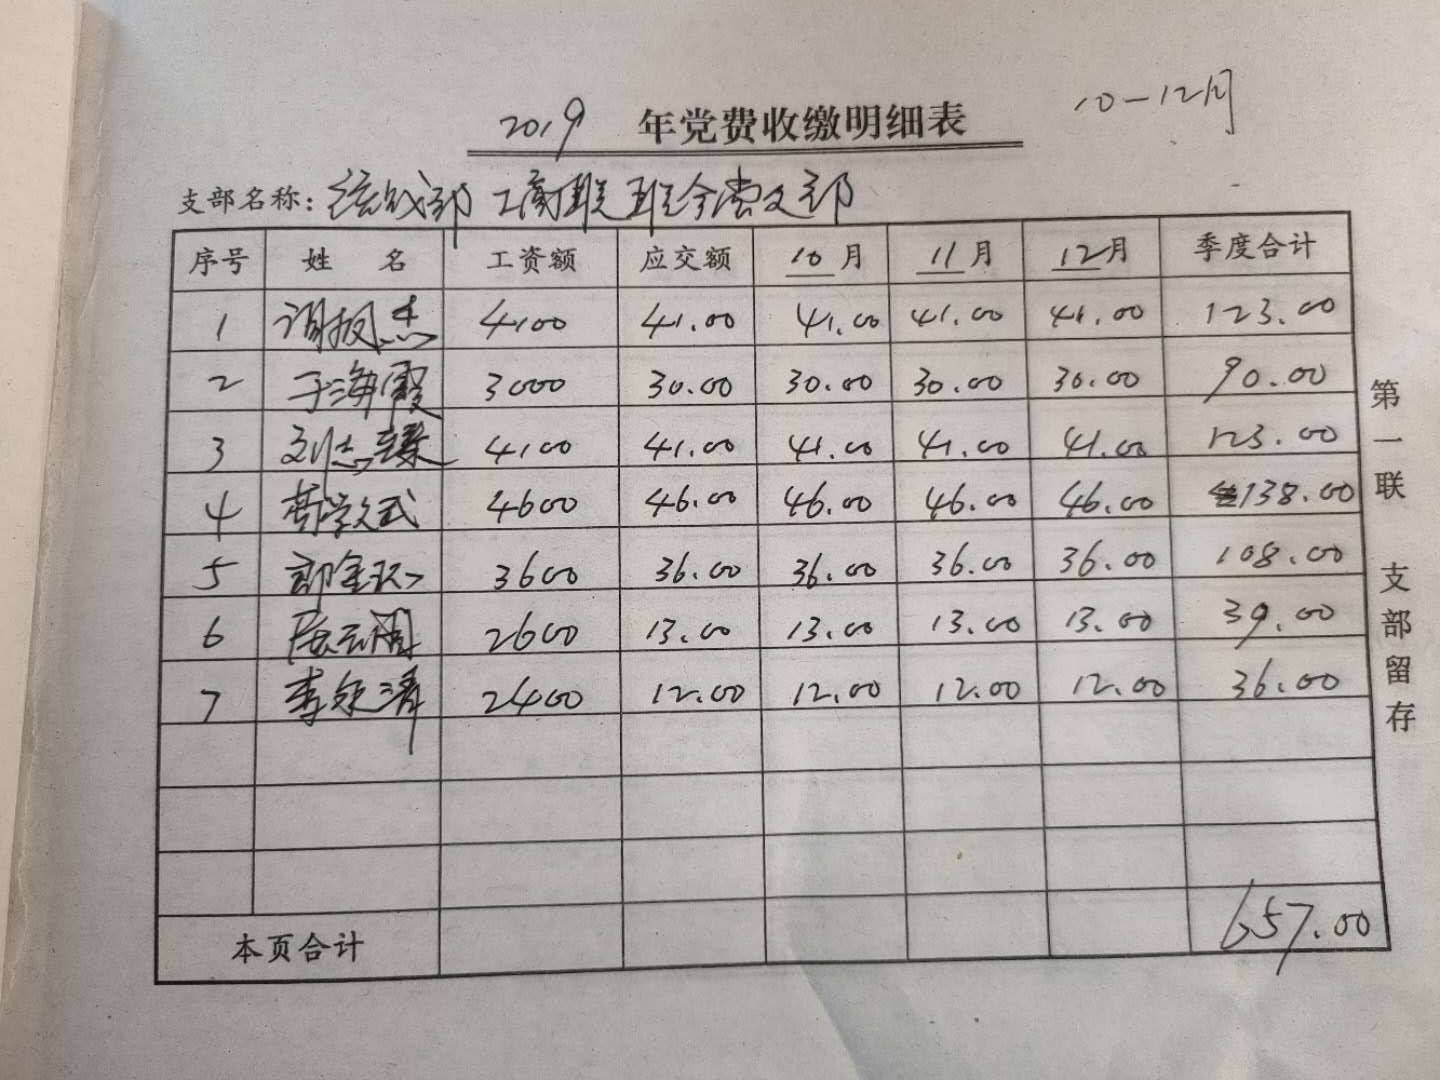 2019 年党费收缴明细表 10-12月
支部名称: 统战部 工商联 联合党支部
序号 姓 名 工资额 应交额 10月 11月 12月 季度合计
1 4100 41.00 41.00 41.00 41.00 123.00
2 于海霞 3000 30.00 30.00 30.00 30.00 90.00
3 刘志臻 4100 41.00 41.00 41.00 41.00 123.00
4 4600 46.00 46.00 46.00 46.00 138.00
5 3600 36.00 36.00 36.00 36.00 108.00
6 2600 13.00 13.00 13.00 13.00 39.00
7 李永清 2400 12.00 12.00 12.00 12.00 36.00
本页合计 657.00
第一联 支部留存